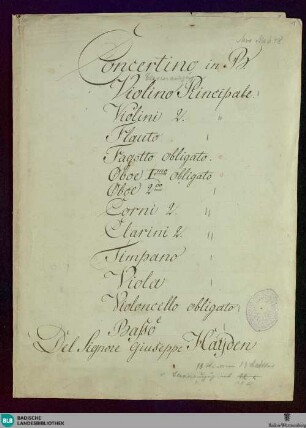 Concertino in B
Violino Principale
Violini 2.
Flauto
Fagotto obligato
Oboe Imo obligato
Oboe 2do
Corni 2
Clarini 2.
Timpano
Viola
Violoncello obligato
e
Basso
Del Signore Giuseppe Hayden
BLB
BADISCHE
LANDESBIBLIOTHEK
Baden-Württemberg